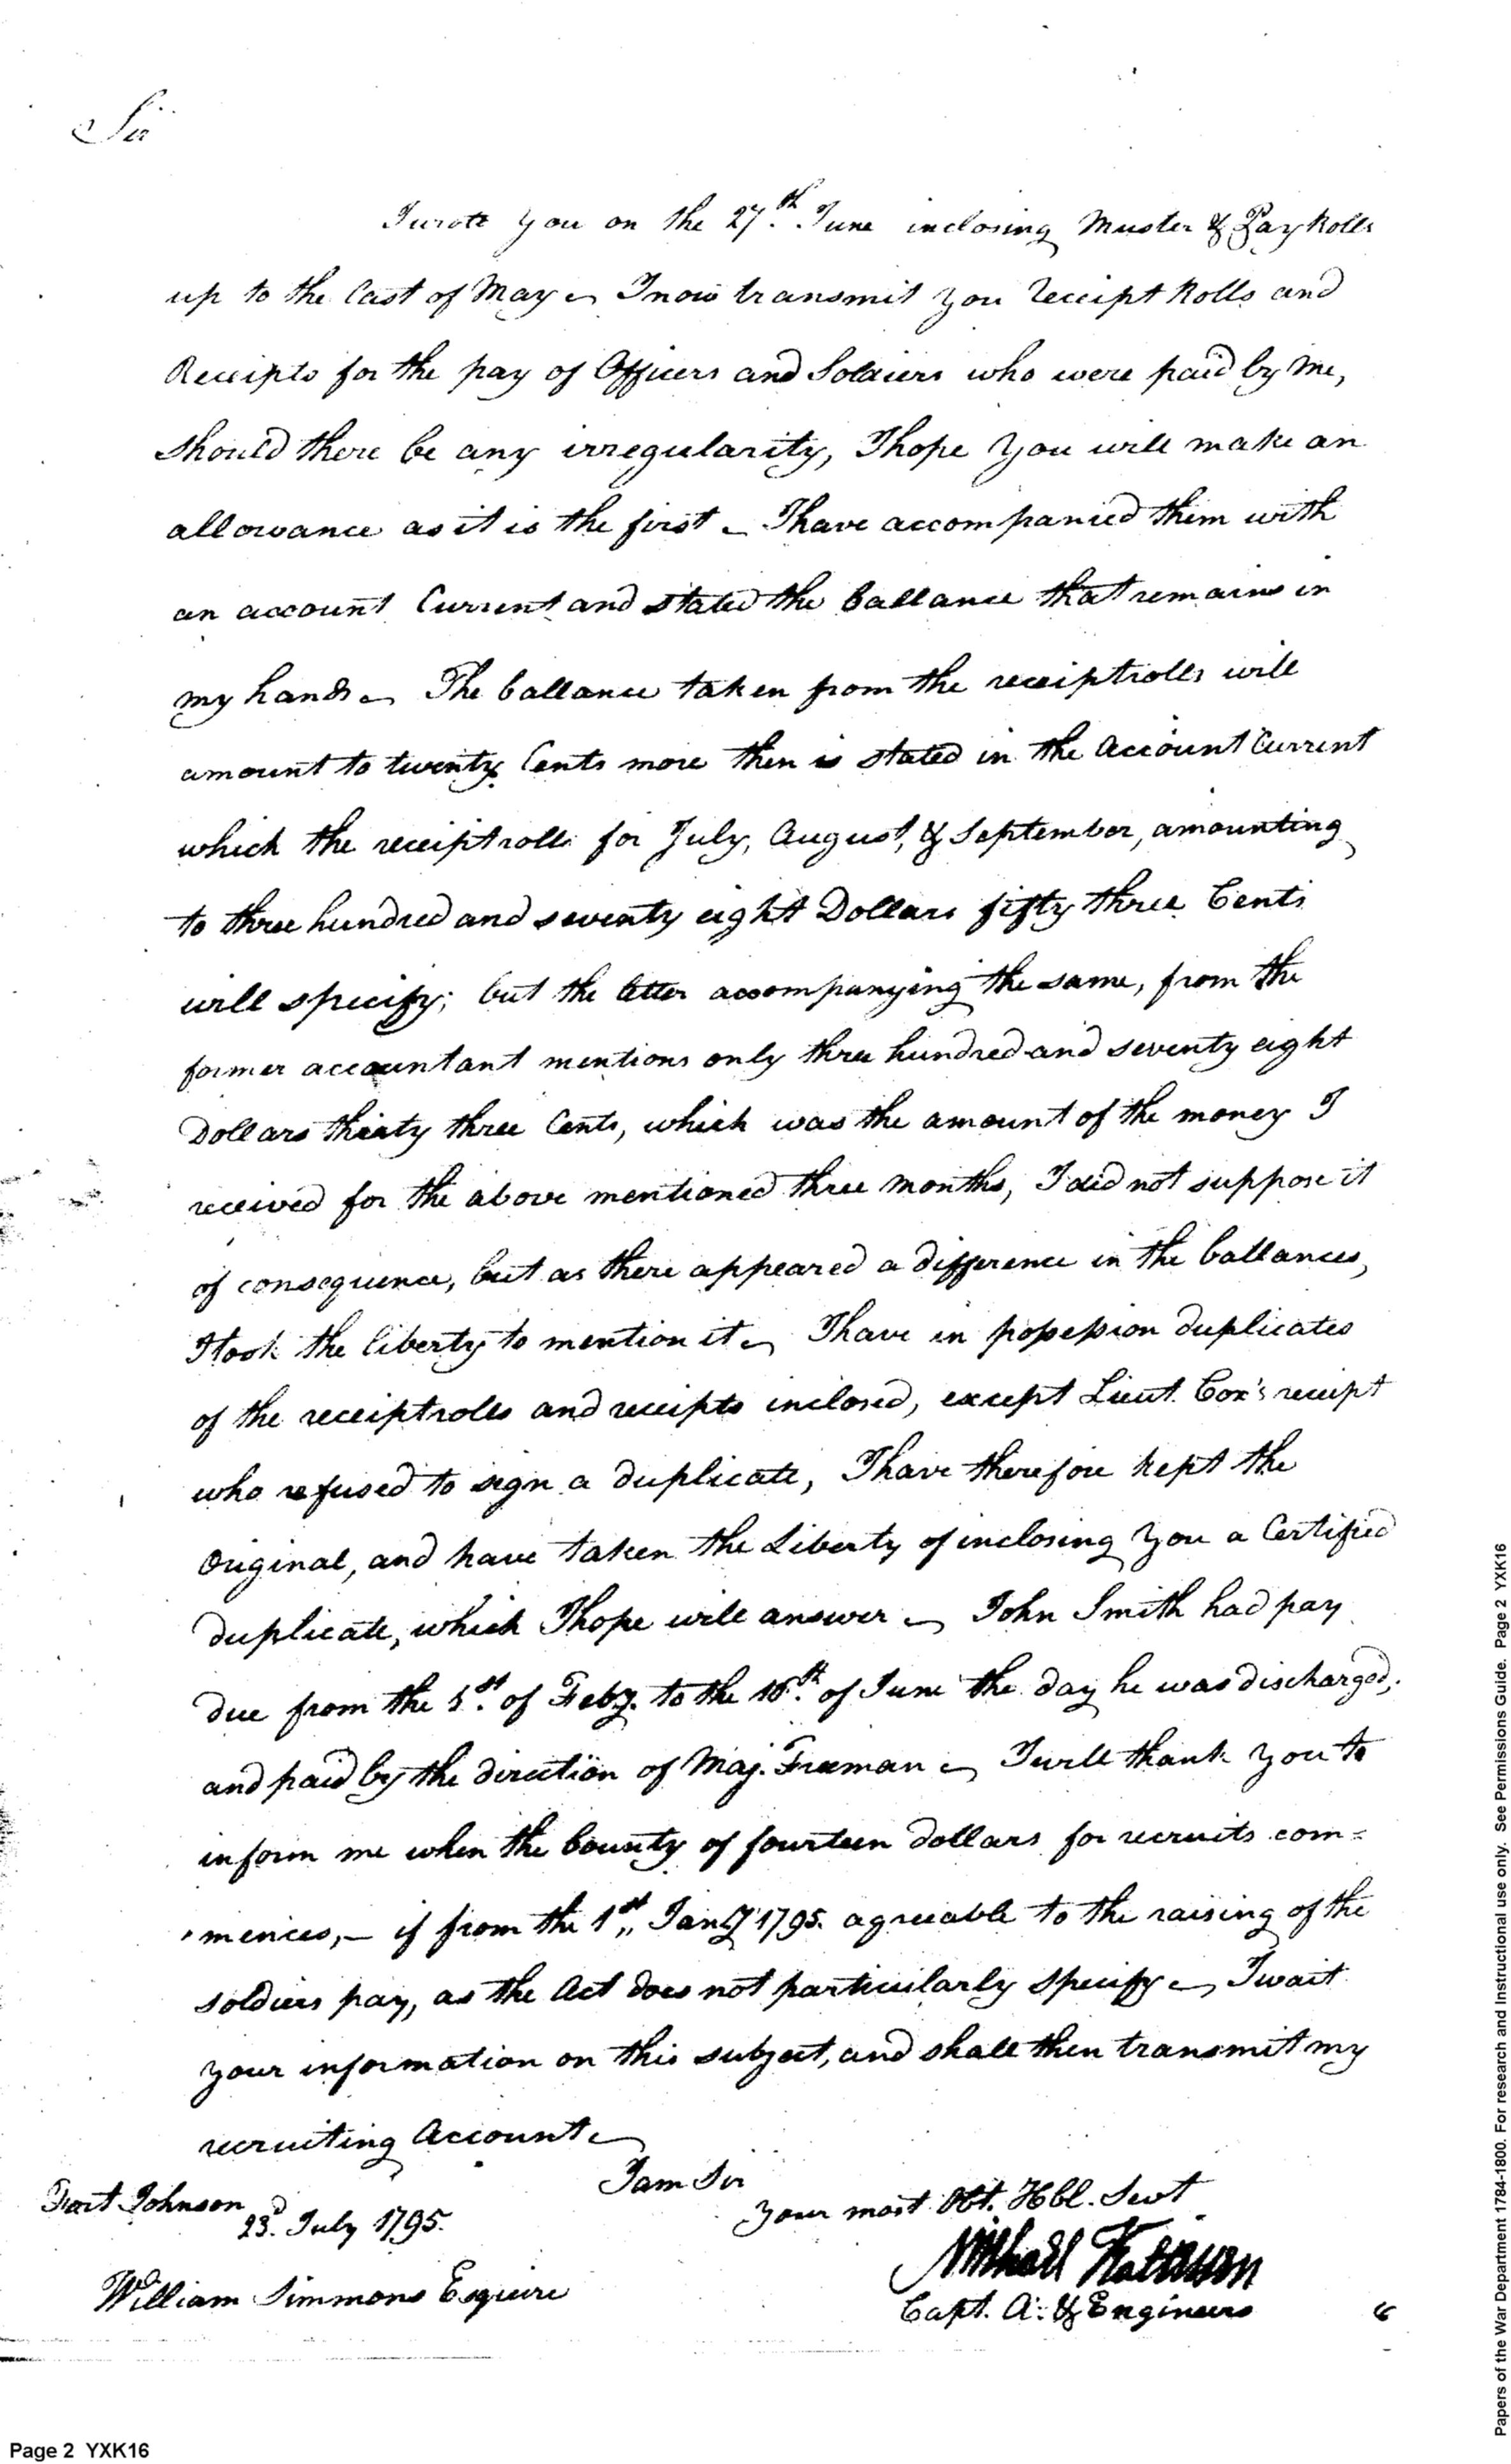 Sir
I wrote you on the 27.th June inclosing Muster & Pay Rolls
up to the last of May – I now transmit you receipt Rolls and
Receipts for the pay of Officers and Soldiers who were paid by me,
should there be any irregularity, I hope you will make an
allowance as it is the first – I have accompanied them with
an account Current and stated the ballance that remains in
my hands – The ballance taken from the receiptrolls will
amount to twenty Cents more then is stated in the Account Current
which the receiptrolls for July, August, & September, amounting
to three hundred and seventy eight Dollars fifty three Cents
will specify; but the letter accompanying the same, from the
former accountant mentions only three hundred and seventy eight
Dollars thirty three Cents, which was the amount of the money I
received for the above mentioned three months, I did not suppose it
of consequence, but as there appeared a difference in the ballances,
I took the liberty to mention it – I have in possession duplicates
of the receiptrolls and receipts inclosed, except Lieut. Cox's receipt
who refused to sign a duplicate, I have therefore kept the
Original, and have taken the Liberty of inclosing you a Certified
duplicate, which I hope will answer – John Smith had pay
due from the 1.st of Feby. to the 16.th of June the day he was discharged,
and paid by the direction of Maj. Freeman – I will thank you to
inform me when the bounty of fourteen dollars for recruits com=
mences, – if from the 1st,, Jany 1795. agreeable to the raising of the
soldiers pay, as the Act does not particularly specify – I wait
your information on this subject, and shall then transmit my
recruiting Account –
I am Sir
your most Obt. Hbl. Servt
Fort Johnson
23.d July 1795.
Michael Kalteisen
William Simmons Esquire
Capt. A: & Engineers
Page 2 YXK16
Papers of the War Department 1784-1800. For research and Instructional use only. See Permissions Guide. Page 2 YXK16